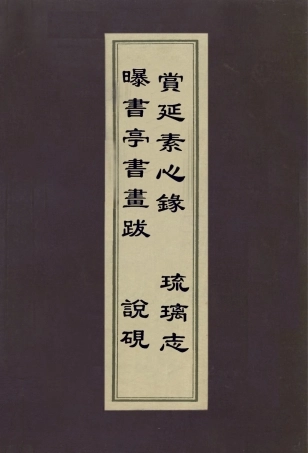 賞延素心錄 琉璃志
曝書亭書畫跋 說硯